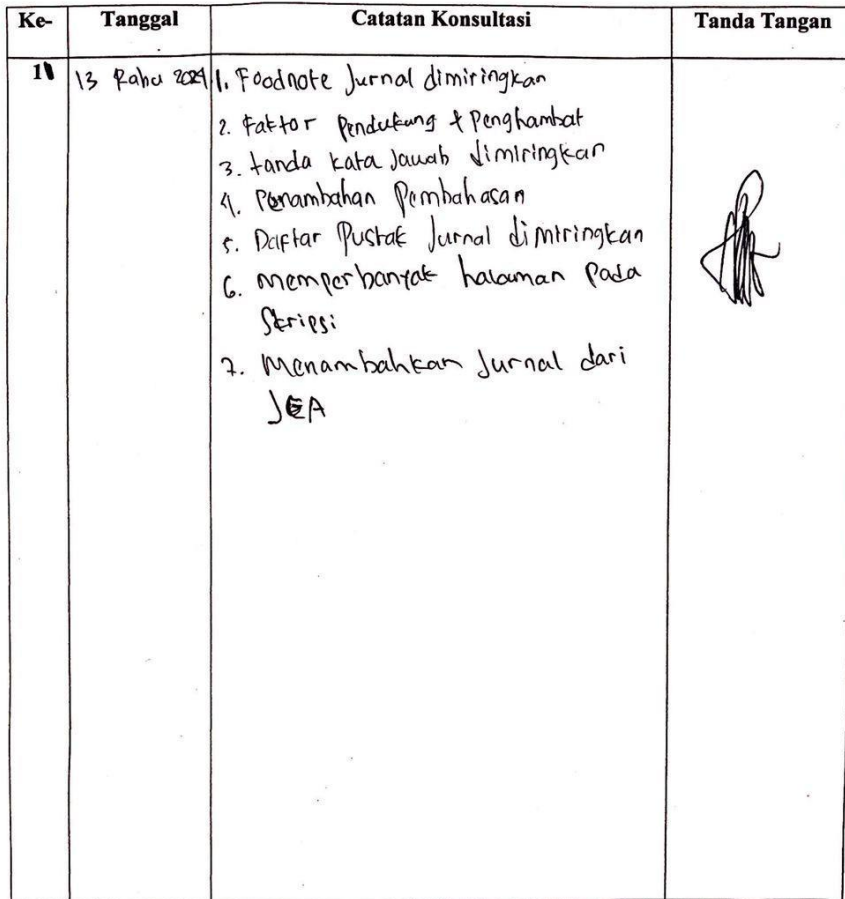 Ke- Tanggal Catatan Konsultasi Tanda Tangan
11 13 Rabu 2024 1. Foodnote Jurnal dimiringkan
2. Faktor Pendukung & Penghambat
3. tanda kata Jawab dimiringkan
4. Penambahan Pembahasan
5. Daftar Pustak Jurnal dimiringkan
6. memperbanyak halaman Pada
Skripsi
7. Menambahkan Jurnal dari
JEA